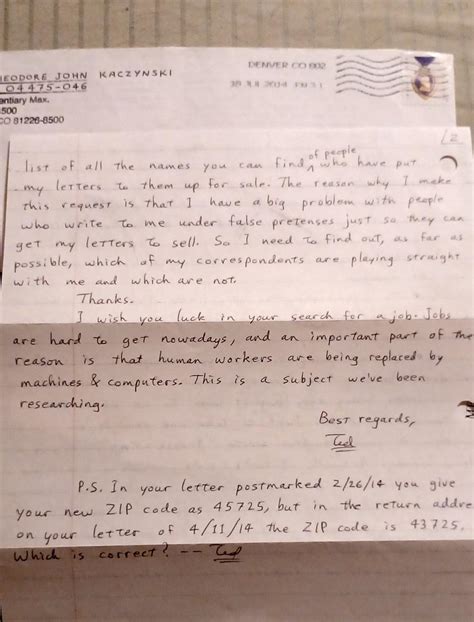 HEODORE JOHN KACZYNSKI
04475-046
entiary Max.
500
CO 81226-8500
DENVER CO 802
2014
2
list of all the names you can find ^ of people who have put
my letters to them up for sale. The reason why I make
this request is that I have a big problem with people
who write to me under false pretenses just so they can
get my letters to sell. So I need to find out, as far as
possible, which of my correspondents are playing straight
with me and which are not.
Thanks.
I wish you luck in your search for a job. Jobs
are hard to get nowadays, and an important part of the
reason is that human workers are being replaced by
machines & computers. This is a subject we've been
researching.
Best regards,
Ted
P.S. In your letter postmarked 2/26/14 you give
your new ZIP code as 45725, but in the return addre
on your letter of 4/11/14 the ZIP code is 43725.
Which is correct? -- Ted